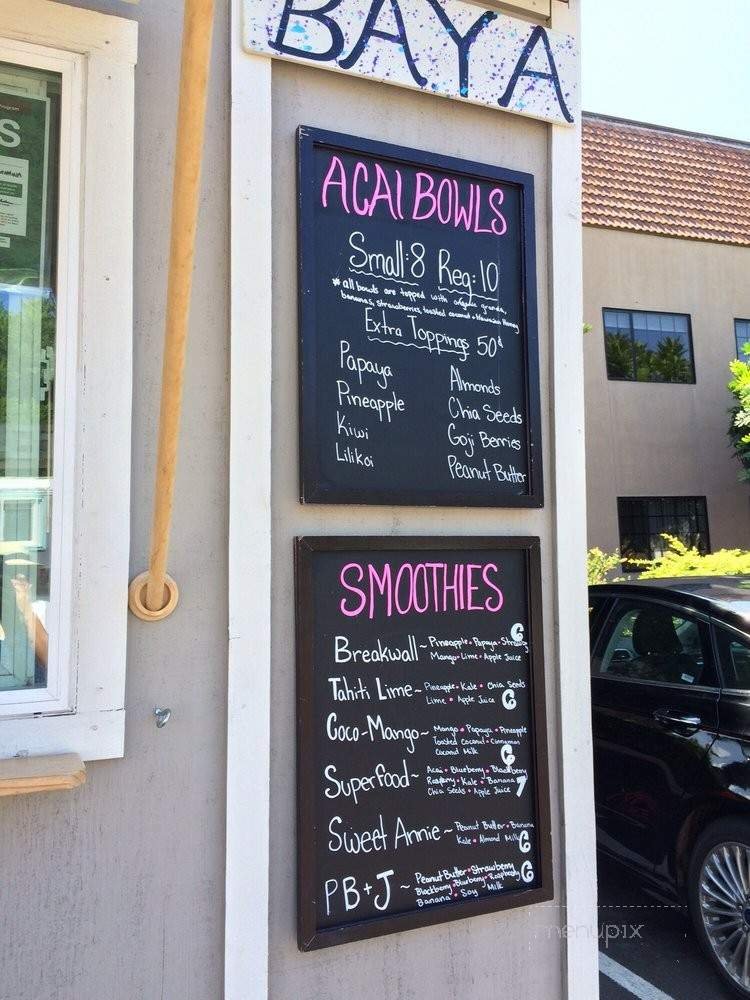 BAYA
ACAI BOWLS
Small: 8 Reg: 10
*all bowls are topped with organic granola,
bananas, strawberries, toasted coconut + Hawaiian Honey
Extra Toppings 50¢
Papaya
Pineapple
Kiwi
Lilikoi
Almonds
Chia Seeds
Goji Berries
Peanut Butter
SMOOTHIES
Breakwall ~ Pineapple • Papaya • 6
Mango • Lime • Apple Juice
Tahiti Lime ~ Pineapple • Kale • Chia Seeds
Lime • Apple Juice 6
Coco-Mango ~ Mango • Papaya • Pineapple
Toasted Coconut • Cinnamon
Coconut Milk 6
Superfood ~ Acai • Blueberry • Blackberry
Raspberry • Kale • Banana
Chia Seeds • Apple Juice 7
Sweet Annie ~ Peanut Butter • Banana
Kale • Almond Milk 6
PB+J ~ Peanut Butter • Strawberry 6
Blackberry • Blueberry • Raspberry
Banana • Soy Milk
menupix